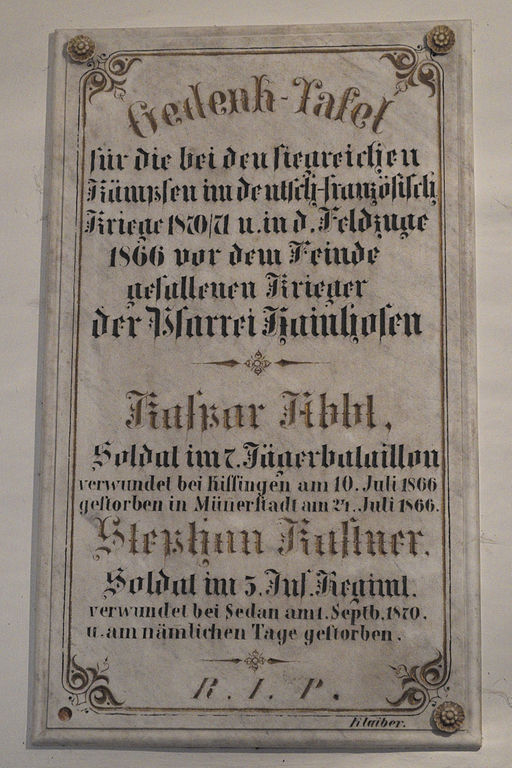 Gedenk-Tafel
für die bei den siegreichen
Kämpfen im deutsch-französisch
Kriege 1870/71 u. in d. Feldzuge
1866 vor dem Feinde
gefallenen Krieger
der Pfarrei Hainhofen
Kaspar Abbt,
Soldat im 7. Jägerbataillon
verwundet bei Kissingen am 10. Juli 1866
gestorben in Münerstadt am 24. Juli 1866.
Stephan Kastner,
Soldat im 3. Inf. Regimt.
verwundet bei Sedan am 1. Septb. 1870.
u. am nämlichen Tage gestorben.
R. I. P.
Klaiber.